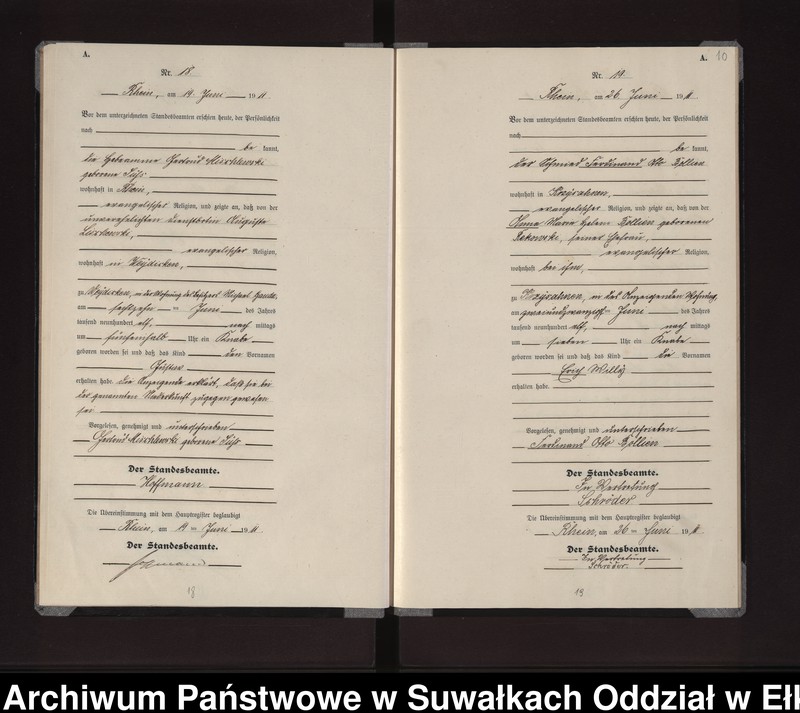 A.
Nr. 18
Rhein, am 19 Juni 1911
Vor dem unterzeichneten Standesbeamten erschien heute, der Persönlichkeit
nach
be kannt,
die Hebeamme
geborene
wohnhaft in Rhein,
evangelischer Religion, und zeigte an, daß von der
unverehelichten Dienstboten Auguste
evangelischer Religion,
wohnhaft in
zu in der Wohnung des Besitzers Michael
am sechzehn ten Juni des Jahres
tausend neunhundert elf, nach mittags
um fünfeinhalb Uhr ein Knabe
geboren worden sei und daß das Kind den Vornamen
Gustav
erhalten habe. Die Anzeigende erklärt, daß sie bei
der genannten Niederkunft zugegen gewesen
sei.
Vorgelesen, genehmigt und unterschrieben
geborene
Der Standesbeamte.
Hoffmann
Die Übereinstimmung mit dem Hauptregister beglaubigt
Rhein, am 19 ten Juni 1911
Der Standesbeamte.
18
A. 10
Nr. 19
Rhein, am 26 Juni 1911
Vor dem unterzeichneten Standesbeamten erschien heute, der Persönlichkeit
nach
be kannt,
der Schmied Ferdinand Otto Böllien
wohnhaft in
evangelischer Religion, und zeigte an, daß von der
Anna Marie Helene Böllien geborenen
seiner Ehefrau,
evangelischer Religion,
wohnhaft bei ihm,
zu in des Anzeigenden Wohnung,
am ten Juni des Jahres
tausend neunhundert elf, nach mittags
um sieben Uhr ein Knabe
geboren worden sei und daß das Kind die Vornamen
Erich Willy
erhalten habe.
Vorgelesen, genehmigt und unterschrieben
Ferdinand Otto Böllien
Der Standesbeamte.
In Vertretung
Schröder
Die Übereinstimmung mit dem Hauptregister beglaubigt
Rhein, am 26 ten Juni 1911
Der Standesbeamte.
In Vertretung
Schröder
19
Archiwum Państwowe w Suwałkach Oddział w Ełk